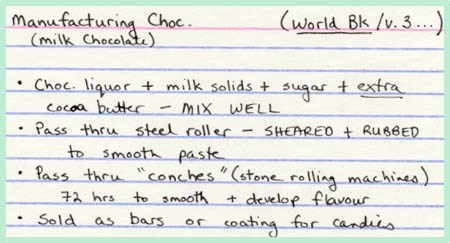 Manufacturing Choc. (World Bk/v.3...)
(milk Chocolate)
• Choc. liquor + milk solids + sugar + extra
cocoa butter – MIX WELL
• Pass thru steel roller – SHEARED + RUBBED
to smooth paste
• Pass thru "conches" (stone rolling machines)
72 hrs to smooth + develop flavour
• Sold as bars or coating for candies